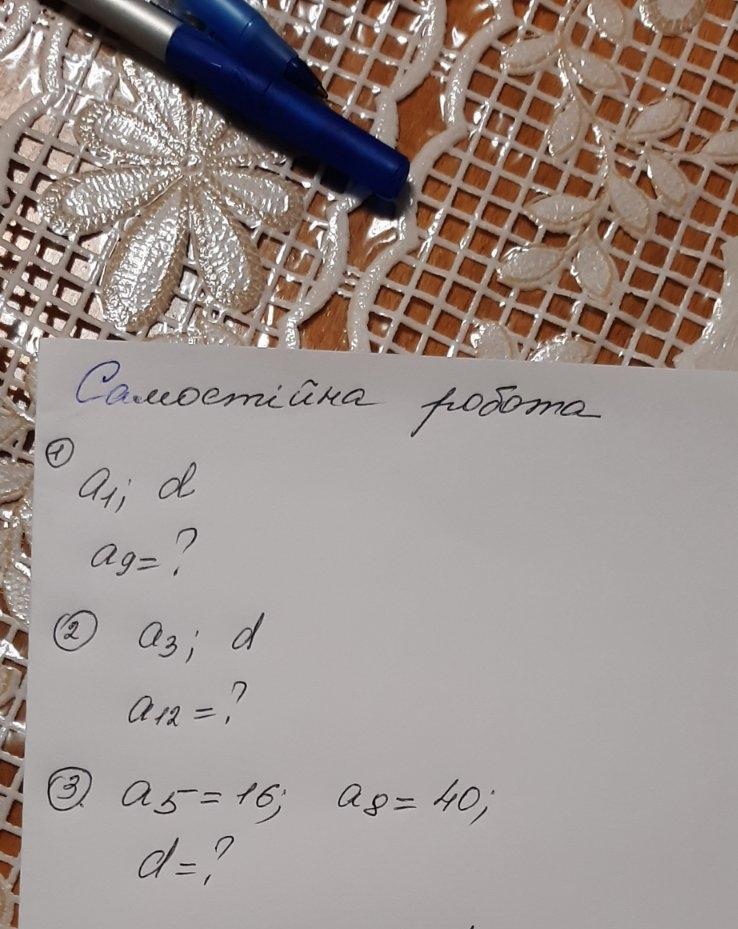 Самостійна робота
① a₁; d
a₉ = ?
② a₃; d
a₁₂ = ?
③ a₅ = 16; a₈ = 40;
d = ?